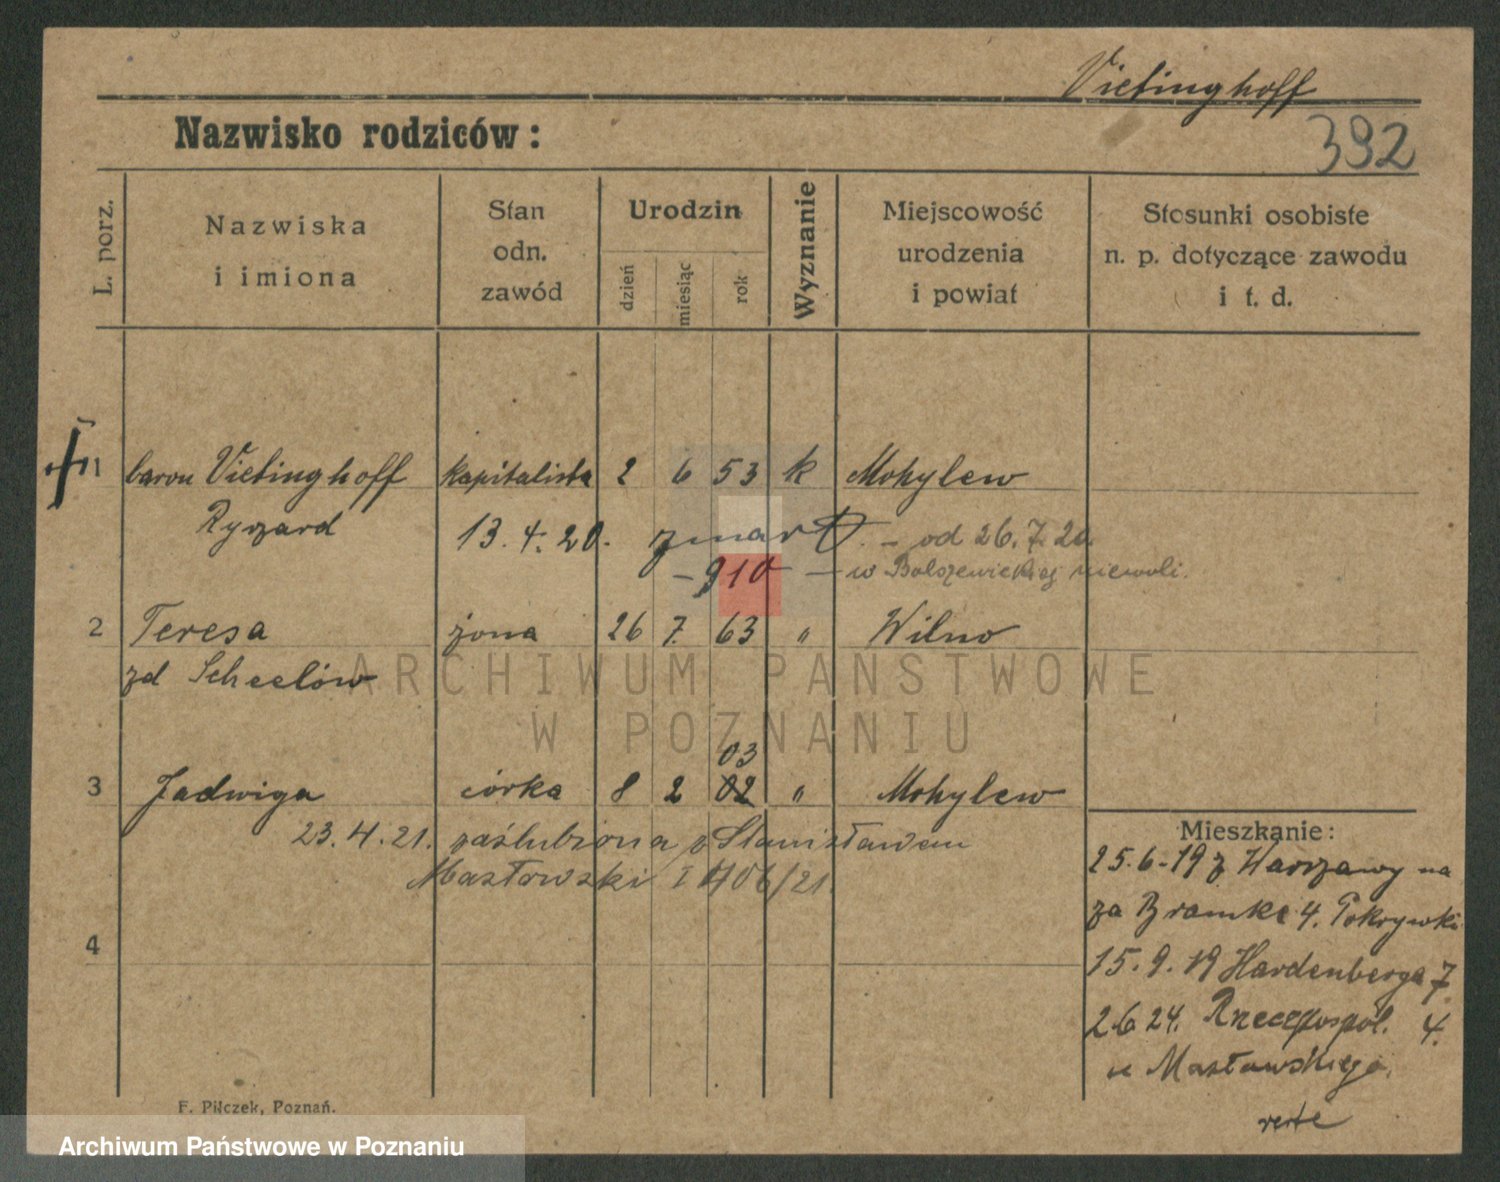 Vietinghoff
Nazwisko rodziców:
392
L. porz.
Nazwiska
i imiona
Stan
odn.
zawód
Urodzin
dzień
miesiąc
rok
Wyznanie
Miejscowość
urodzenia
i powiat
Stosunki osobiste
n. p. dotyczące zawodu
i t. d.
1 baron Vietinghoff kapitalista 2 6 53 k Mohylew
Ryszard 13. 4. 20. zmarł. – od 26. 7. 20.
– 910 – w Bolszewickiej niewoli.
2 Teresa żona 26 7. 63 " Wilno
zd Scheelów
ARCHIWUM PAŃSTWOWE
W POZNANIU
03
3 Jadwiga córka 8 2 02 " Mohylew
23. 4. 21. zaślubiona z Stanisławem
Masłowski I 1706/21.
4
Mieszkanie:
25. 6. 19 z Warszawy na
za Bramke 4. Pokrywki
15. 9. 19 Hardenberga 7.
26 24. Rzeczpospol. 4.
u Masłowskiego.
verte
F. Pilczek, Poznań.
Archiwum Państwowe w Poznaniu